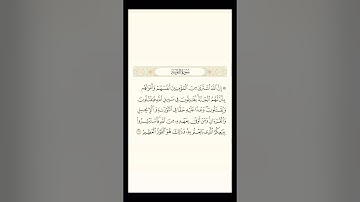 سُورَةُ التَّوۡبَةِ
۞ إِنَّ ٱللَّهَ ٱشۡتَرَىٰ مِنَ ٱلۡمُؤۡمِنِينَ أَنفُسَهُمۡ وَأَمۡوَٰلَهُم
بِأَنَّ لَهُمُ ٱلۡجَنَّةَۚ يُقَٰتِلُونَ فِي سَبِيلِ ٱللَّهِ فَيَقۡتُلُونَ
وَيُقۡتَلُونَۖ وَعۡدًا عَلَيۡهِ حَقّٗا فِي ٱلتَّوۡرَىٰةِ وَٱلۡإِنجِيلِ
وَٱلۡقُرۡءَانِۚ وَمَنۡ أَوۡفَىٰ بِعَهۡدِهِۦ مِنَ ٱللَّهِۚ فَٱسۡتَبۡشِرُواْ
بِبَيۡعِكُمُ ٱلَّذِي بَايَعۡتُم بِهِۦۚ وَذَٰلِكَ هُوَ ٱلۡفَوۡزُ ٱلۡعَظِيمُ ١١١